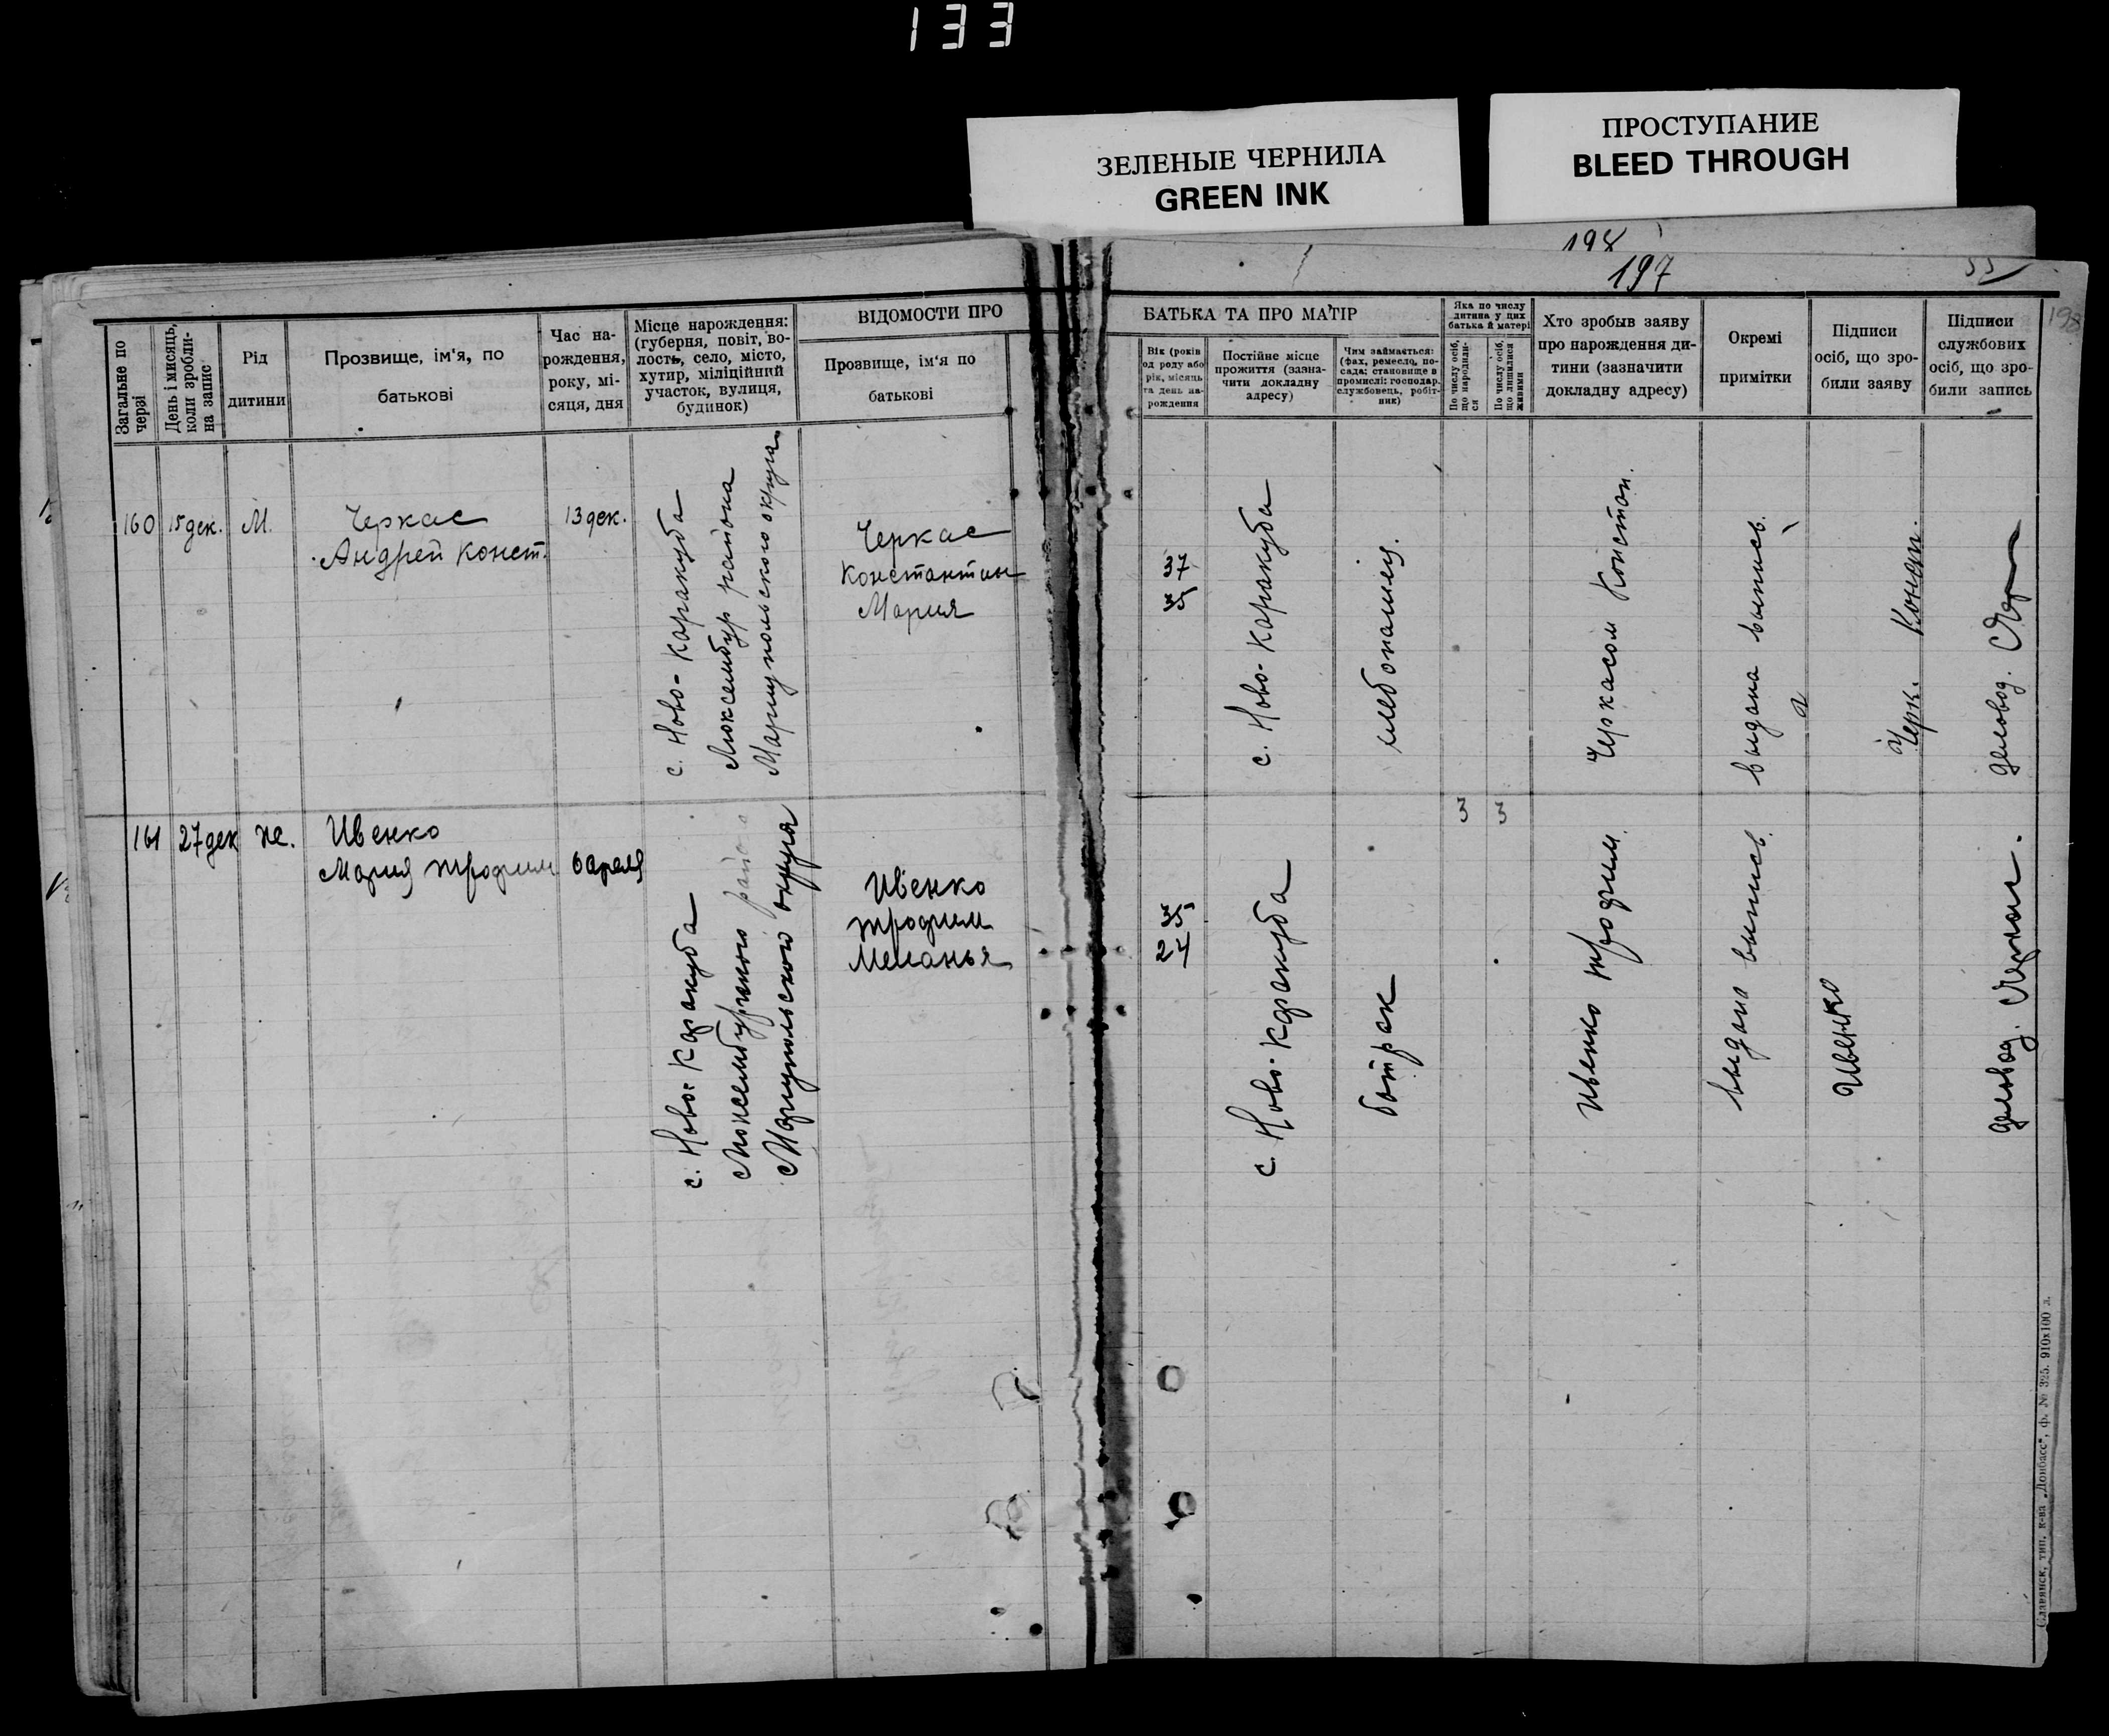 133
ЗЕЛЕНЫЕ ЧЕРНИЛА
GREEN INK
ПРОСТУПАНИЕ
BLEED THROUGH
198
197
198
ВІДОМОСТИ ПРО
БАТЬКА ТА ПРО МАТІР
Загальне по
черзі
День і місяць,
коли зробли-
на запис
Рід
дитини
Прозвище, ім'я, по
батькові
Час на-
рождення,
року, мі-
сяця, дня
Місце нарождення:
(губерня, повіт, во-
лость, село, місто,
хутир, міліційний
участок, вулиця,
будинок)
Прозвище, ім'я по
батькові
Вік (років
од роду або
рік, місяць
та день на-
рождення
Постійне місце
прожиття (зазна-
чити докладну
адресу)
Чим займається:
(фах, ремесло, по-
сада; становище в
промислі: господар,
службовець, робіт-
ник)
Яка по числу
дитина у цих
батька й матері
По числу осіб,
що народили-
ся
По числу осіб,
що лишилися
живими
Хто зробыв заяву
про нарождення ди-
тини (зазначити
докладну адресу)
Окремі
примітки
Підписи
осіб, що зро-
били заяву
Підписи
службових
осіб, що зро-
били запись
160
15 дек.
М.
Черкас
Андрей Конст.
13 дек.
с. Ново-Каракуба
Люксембур района
Мариупольского округа
Черкас
Константин
Мария
37
35
с. Ново-Каракуба
хлебопашец.
Черкасом Констан.
выдана выпись.
Черк. Конст.
деловод.
161
27 дек
же.
Ивенко
Мария Трофим
6 апреля
с. Ново-Каракуба
Люксембургского райо
Мариупольского округа
Ивенко
Трофим
Меланья
35
24
с. Ново-Каракуба
батрак
3
3
Ивенко Трофим
выдана выпись.
Ивенко
деловод.
Славянск, тип. к-ва „Донбасс", ф. № 325. 910x100 л.